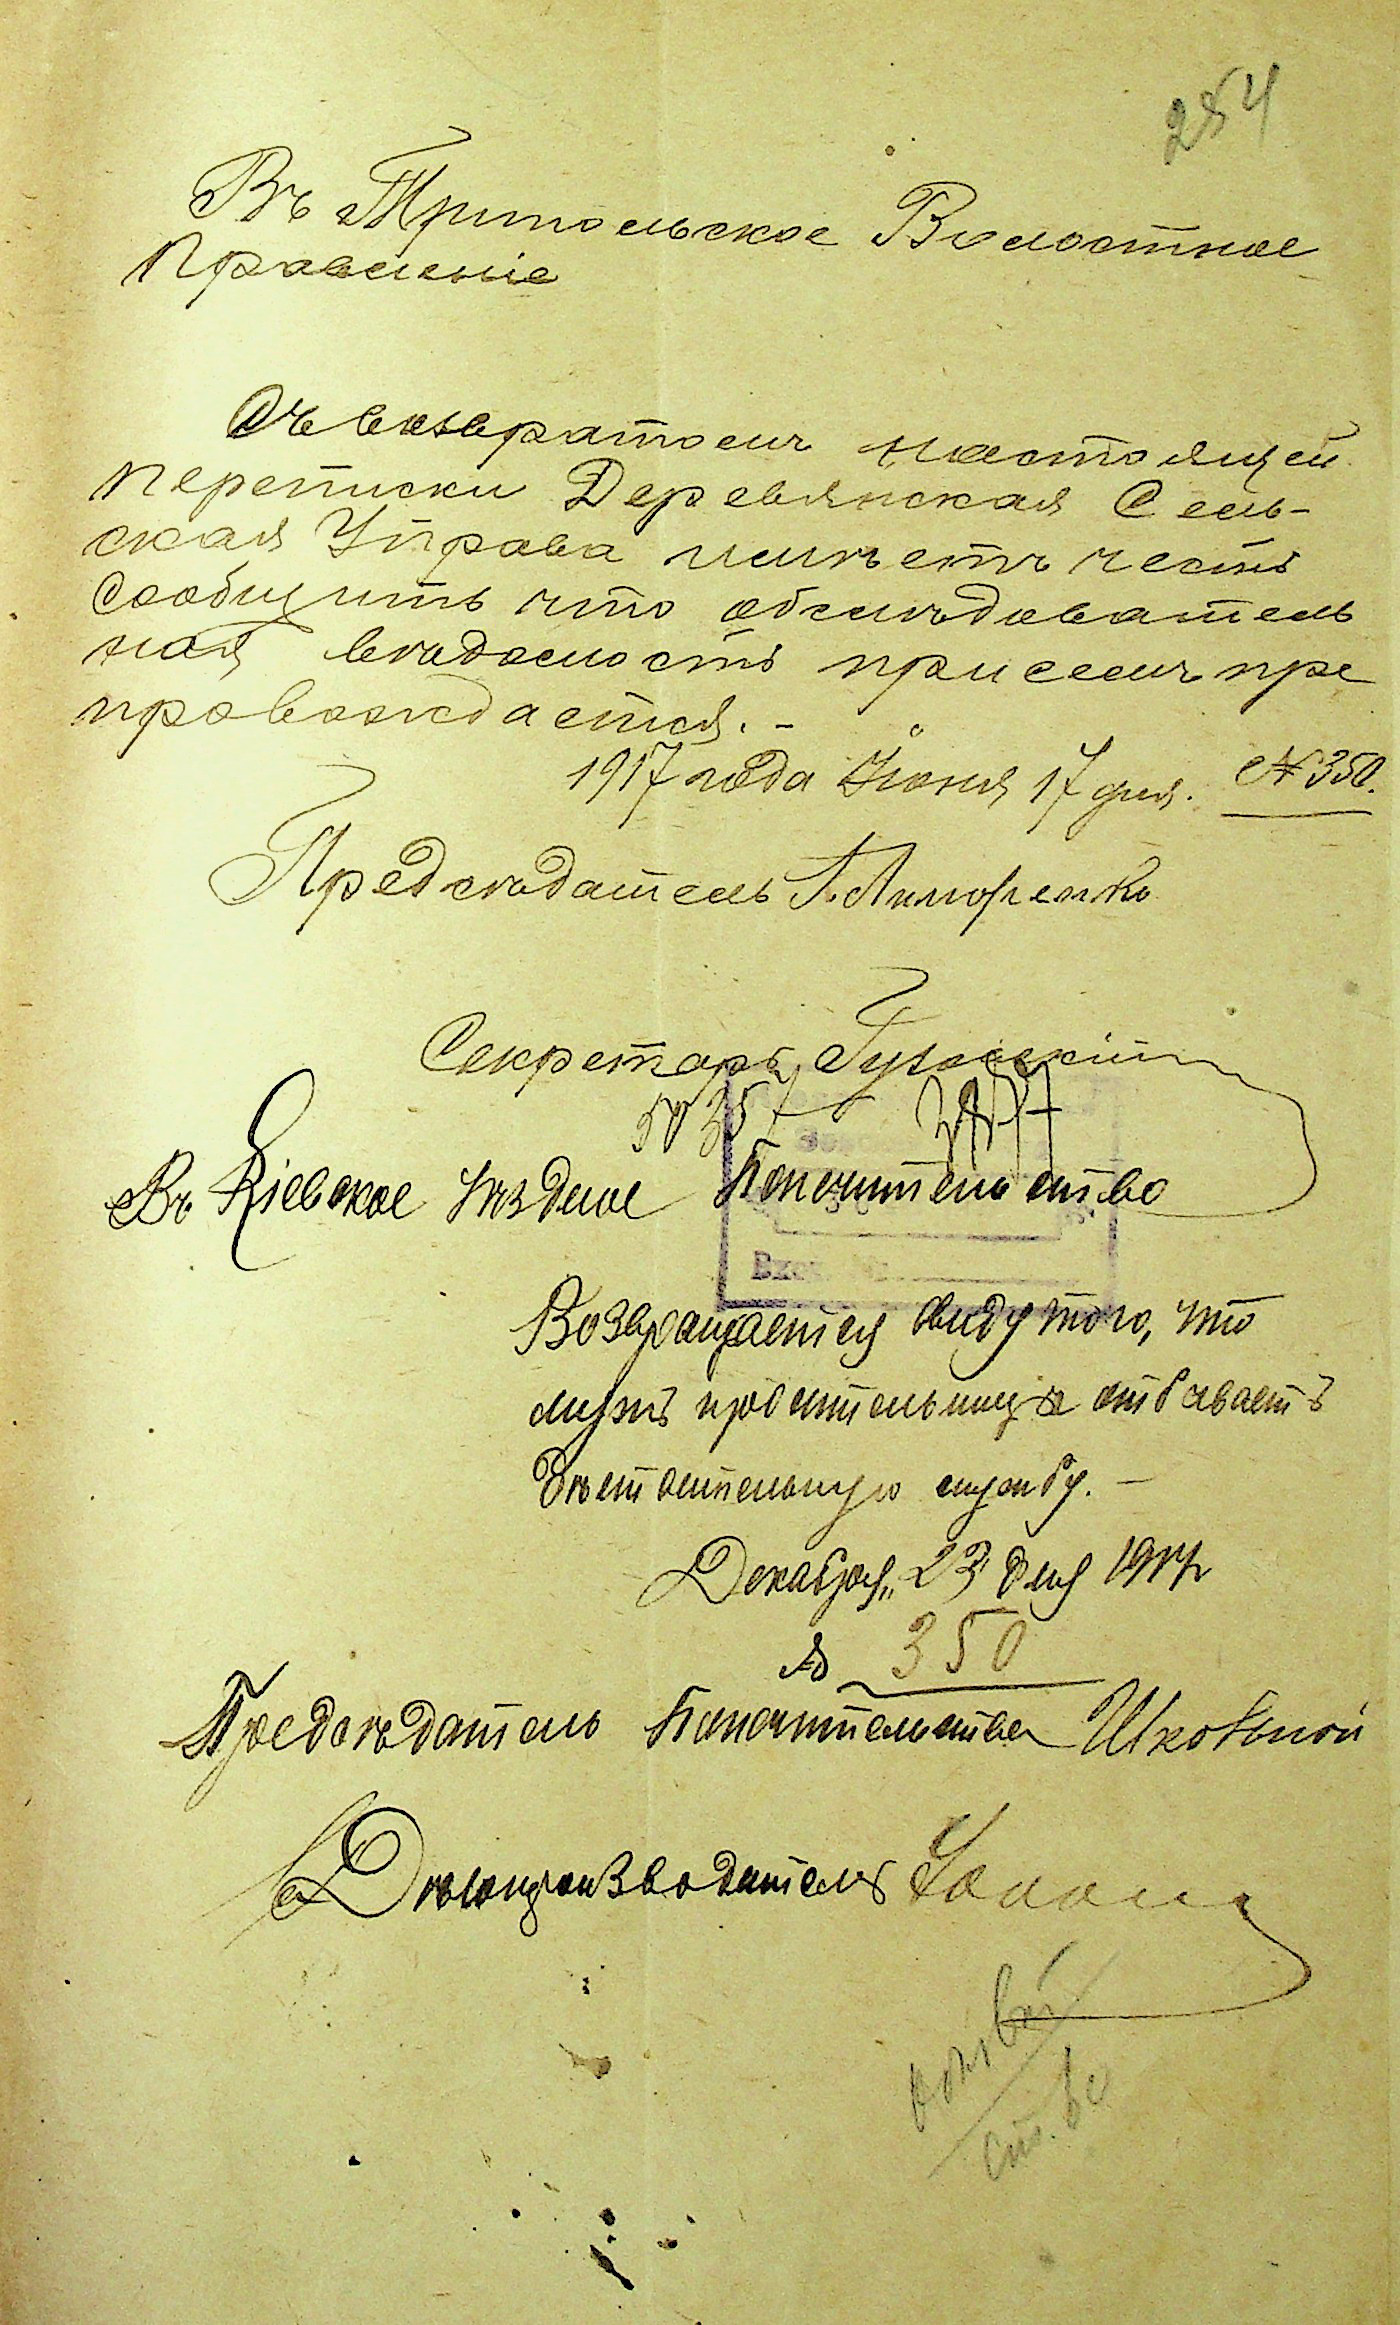 254
Въ Трипольское Волостное
Правленіе
Съ возвратомъ настоящей
переписки Деревянская Сель-
ская Управа имѣетъ честь
сообщить что обслѣдователь
ная вѣдомость при семъ пре
провождается. -
1917 года Іюня 17 дня. № 350.
Предсѣдатель
Секретарь
5035
Въ Кіевское Уѣздное Попечительство
Возвращается ввиду того, что
мужъ просительницы отбываетъ
дѣйствительную службу. -
Декабря 23 дня 1917
№ 350
Предсѣдатель Попечительства
Дѣлопроизводитель